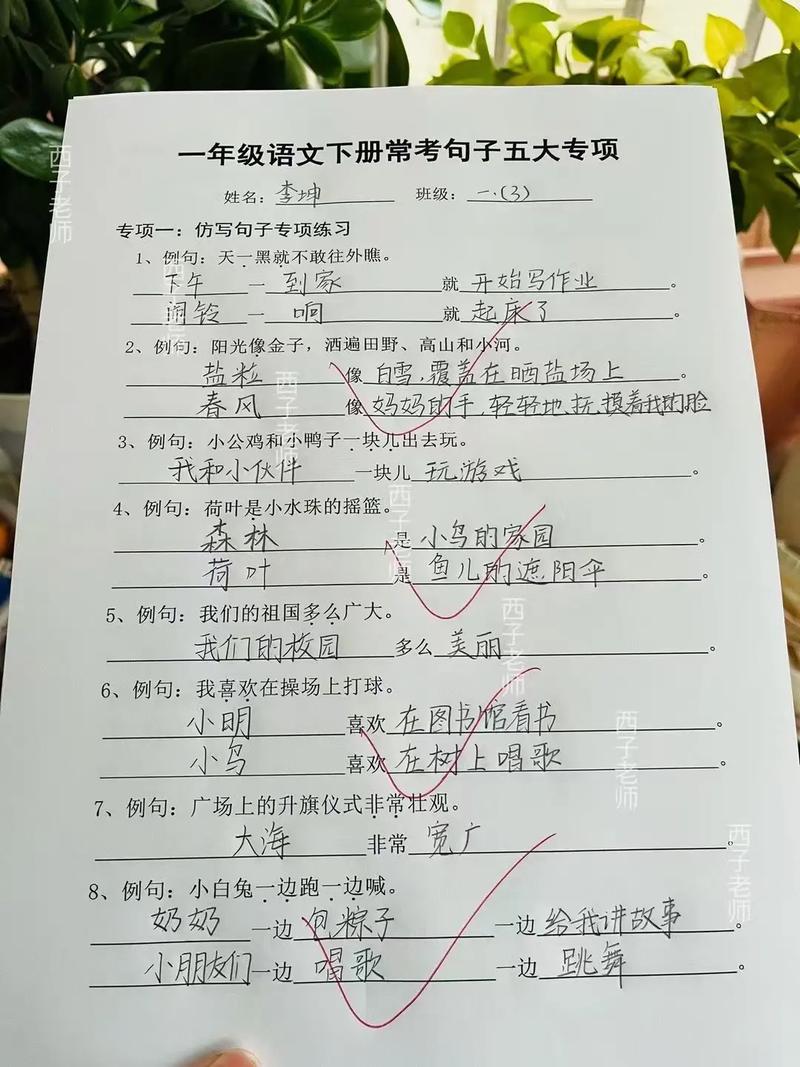 一年级语文下册常考句子五大专项
姓名：李坤 班级：一.(3)
专项一：仿写句子专项练习
1、例句：天一黑就不敢往外瞧。
下午 一 到家 就 开始写作业 。
闹铃 一 响 就 起床了 。
2、例句：阳光像金子，洒遍田野、高山和小河。
盐粒 像 白雪,覆盖在晒盐场上 。
春风 像 妈妈的手,轻轻地抚摸着我的脸
3、例句：小公鸡和小鸭子一块儿出去玩。
我和小伙伴 一块儿 玩游戏 。
4、例句：荷叶是小水珠的摇篮。
森林 是 小鸟的家园 。
荷叶 是 鱼儿的遮阳伞 。
5、例句：我们的祖国多么广大。
我们的校园 多么 美丽 。
6、例句：我喜欢在操场上打球。
小明 喜欢 在图书馆看书 。
小鸟 喜欢 在树上唱歌 。
7、例句：广场上的升旗仪式非常壮观。
大海 非常 宽广 。
8、例句：小白兔一边跑一边喊。
奶奶 一边 包粽子 一边 给我讲故事 。
小朋友们 一边 唱歌 一边 跳舞 。
西子老师
西子老师
西子老师
西子老师
西子老师
西子老师
西子老师